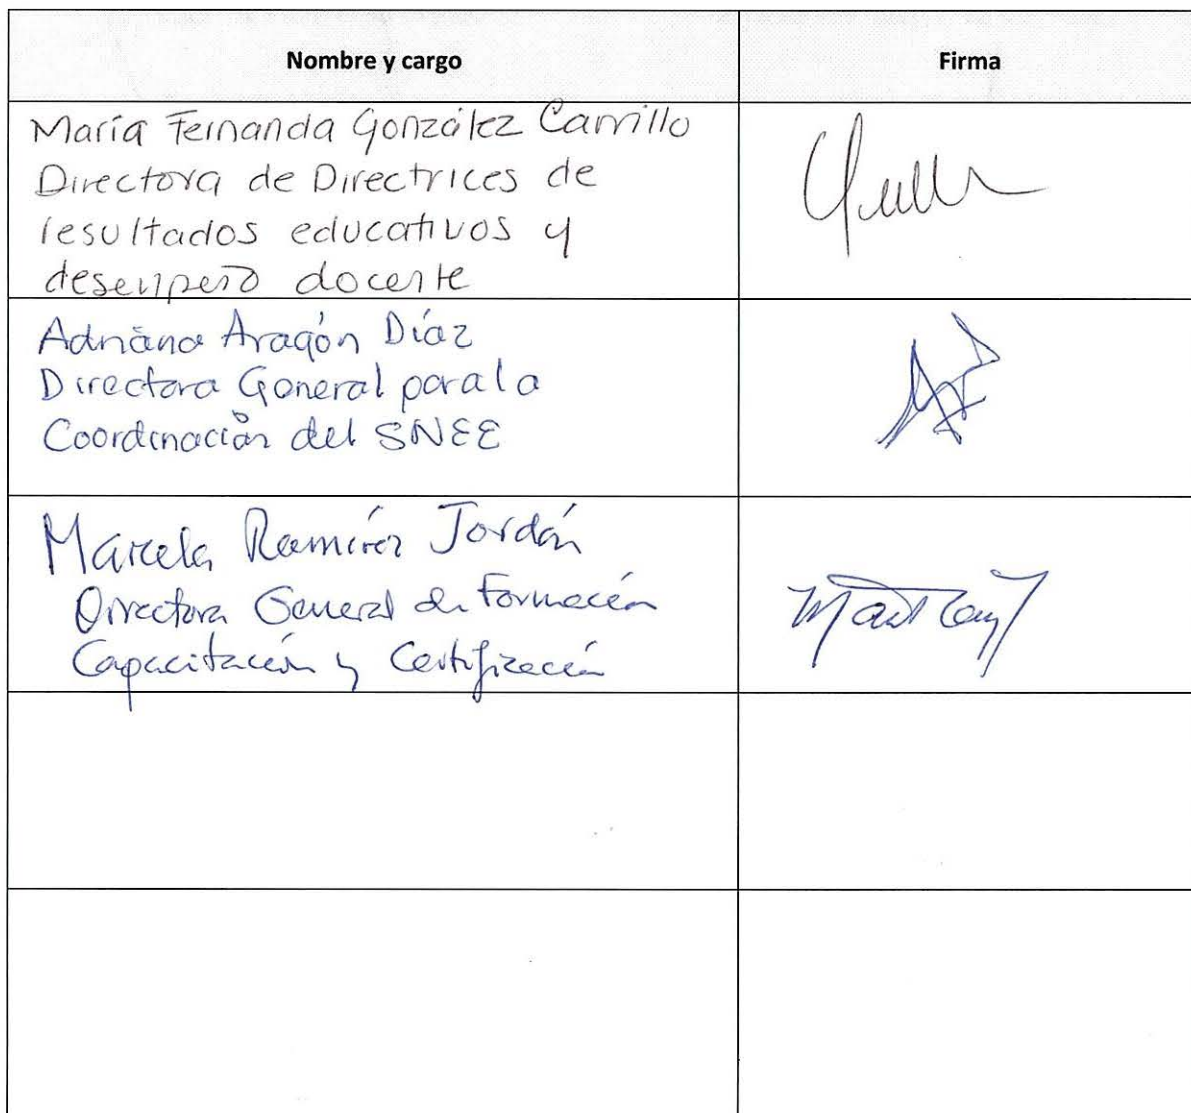 Nombre y cargo
Firma
María Fernanda González Carrillo
Directora de Directrices de
resultados educativos y
desempeño docente
Adriana Aragón Díaz
Directora General para la
Coordinación del SNEE
Marcela Ramírez Jordán
Directora General de Formación
Capacitación y Certificación